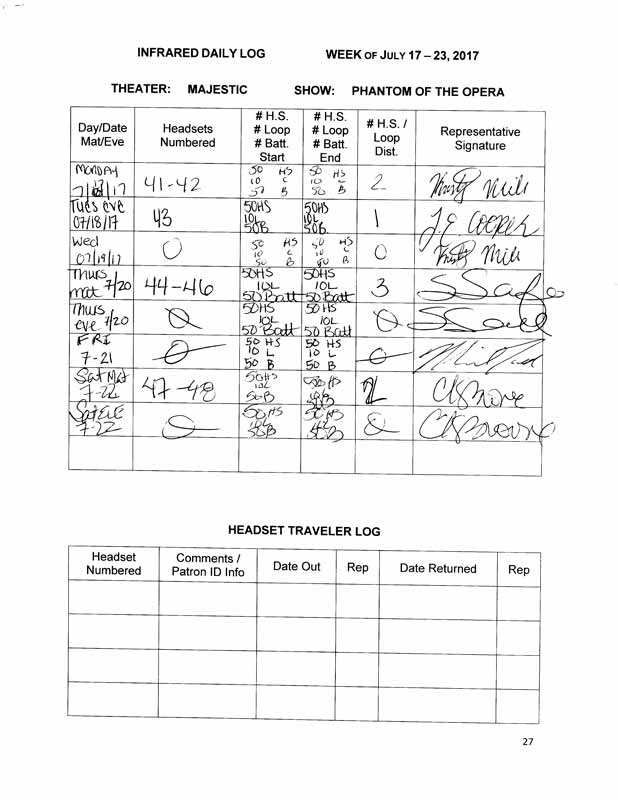 INFRARED DAILY LOG WEEK OF JULY 17 – 23, 2017
THEATER: MAJESTIC SHOW: PHANTOM OF THE OPERA
Day/Date
Mat/Eve
Headsets
Numbered
# H.S.
# Loop
# Batt.
Start
# H.S.
# Loop
# Batt.
End
# H.S. /
Loop
Dist.
Representative
Signature
MONDAY
7/ /17
41-42
50 HS
10 L
50 B
50 HS
10 L
50 B
2
Tues eve
07/18/17
43
50HS
10L
50B
50HS
10L
50B.
1
J.E. COOPER
Wed
07/19/17
0
50 HS
10 L
50 B
50 HS
10 L
50 B
0
Thurs
mat 7/20
44-46
50HS
10L
50 Batt
50HS
10L
50 Batt
3
Thurs
eve 7/20
0
50HS
10L
50 Batt
50 HS
10L
50 Batt
0
FRI
7-21
0
50 HS
10 L
50 B
50 HS
10 L
50 B
0
Sat Mat
7-22
47-48
50HS
10L
50B
50 HS
2
Sat Eve
7-22
0
50HS
50B
50 HS
0
HEADSET TRAVELER LOG
Headset
Numbered
Comments /
Patron ID Info
Date Out
Rep
Date Returned
Rep
27